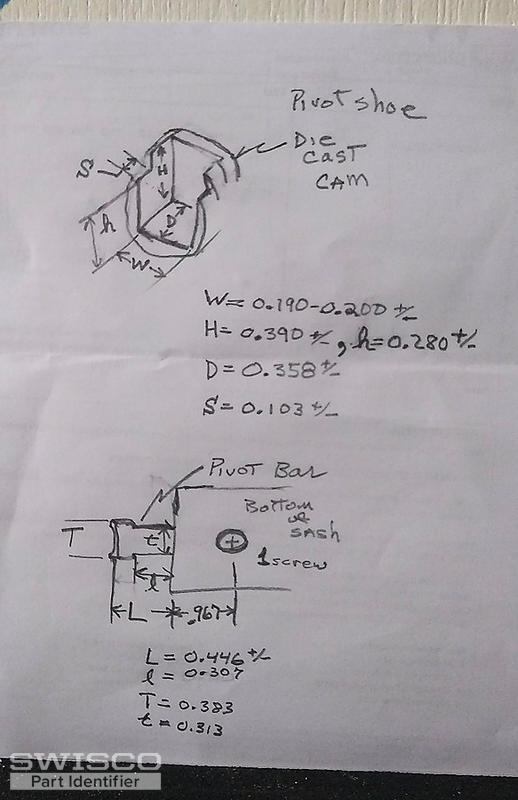 Pivot shoe
Die
CAST
CAM
S
H
h
D
W
W= 0.190-0.200 +/-
H= 0.390 +/-, h=0.280 +/-
D = 0.358 +/-
S = 0.103 +/-
Pivot Bar
Bottom
of
SASH
T
t
1 screw
l
L
.967
L = 0.446 +/-
l = 0.307
T = 0.383
t = 0.313
SWISCO
Part Identifier